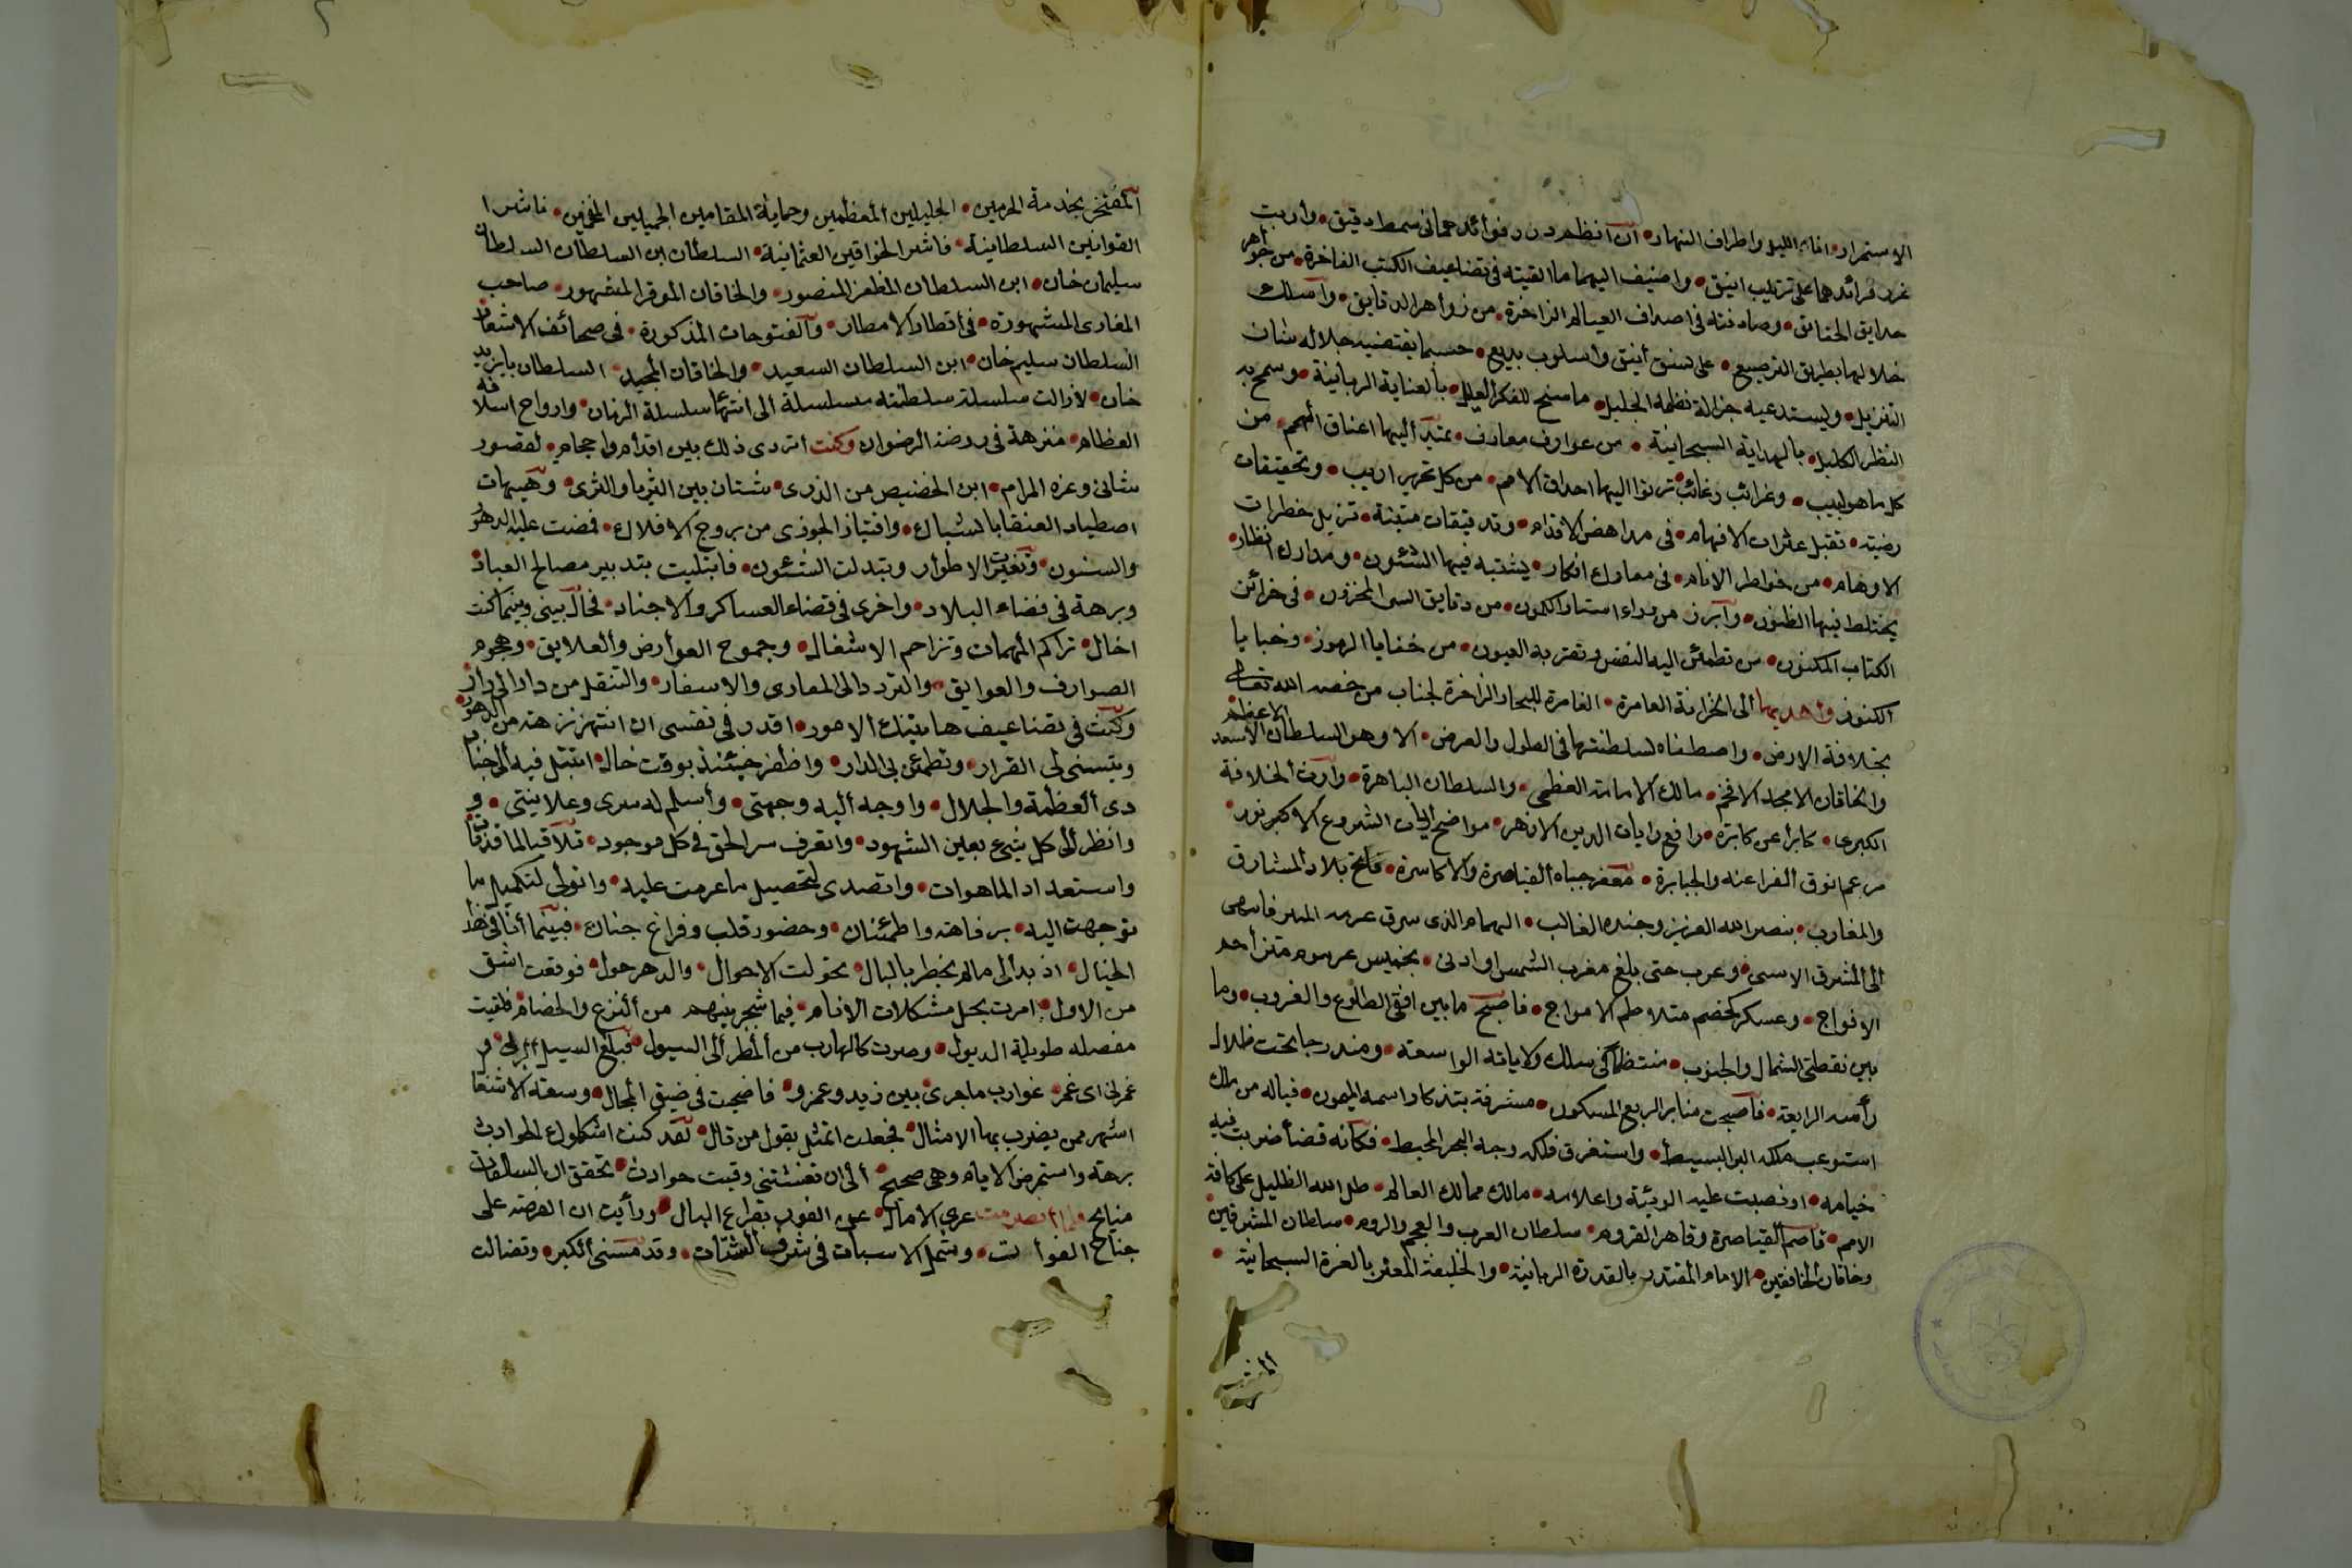 الاستمرار اناء الليل واطراف النهار ان انظم درر فوائدهما في سمط دقيق وأرتب
غرر فرائدهما على ترتيب انيق واضيف اليهما ما القيته في تضاعيف الكتب الفاخرة من جواهر
حدايق الحقائق وصادفته في اصداف العيالم الزاخرة من زواهر الدقايق وأسلك
خلالها بطريق الترصيع على نسق أنيق وأسلوب بديع حسبما يقتضيه جلاله شان
التنزيل ويستدعيه جزالة نظمه الجليل ما سنح للفكر العليل بالعناية الربانية وسمح به
النظر الكليل بالهداية السبحانية من عوارف معارف يمتد أليها اعناق الهمم من
كل ماهر لبيب وغرائب رغائب ترنوا اليها احداق الامم من كل نحرير اريب وتحقيقات
رضيته تقيل عثرات الافهام في مداحض الاقدام وتدقيقات متينة تزيل خطرات
الاوهام من خواطر الانام في معارك افكار يشتبه فيها الشئون ومدارك انظار
يختلط فيها الظنون وأبرز من وراء استار الكمون من دقايق السر المخزون في خزائن
الكتاب المكنون من تطمئن اليه النفس وتقر به العيون من خفايا الرموز وخبايا
الكنوز وأهديها ألى الخزانة العامرة الغامرة للبحار الزاخرة لجناب من خصه الله تعالى
بخلافة الارض واصطفاه لسلطنتها في الطول والعرض الا وهو السلطان الاسعد الاعظم
والخاقان الامجد الافخم مالك الامامة العظمى والسلطان الباهرة وارث الخلافة
الكبرى كابرا عن كابرة رافع رايات الدين الازهر موضح أيات الشرع الاكبر نور
مرغم انوف الفراعنة والجبابرة معفر جباه ألقياصرة والاكاسرة فاتح بلاد المشارق
والمغارب بنصر الله العزيز وجنده الغالب الهمام الذى شرق عزمه المنير فانتهى
الى المشرق الاسنى وغرب حتى بلغ مغرب الشمس او ادنى بخميس عرمرم متزاحم
الافواج وعسكر كخضم متلاطم الامواج فاصبح ما بين افقي الطلوع والغروب وما
بين نقطتي الشمال والجنوب منتظما في سلك ولاياته الواسعة ومندرجا تحت ظلال
رأفته الرايعة فأصبحت منابر الربع المسكون مشرفة بتذكار اسمه الميمون فياله من ملك
استوعب ملكه البر البسيط واستغرق فلكه وجه البحر المحيط فكأنه قضأ ضربت فيه
خيامه او نصبت عليه الويته واعلامه مالك ممالك العالم ظل الله الظليل على كافة
الامم قاصم القياصرة وقاهر القروم سلطان العرب والعجم والروم سلطان المشرقين
وخاقان الخافقين الامام المقتدر بالقدرة الربانية والخليفة المعتز بالعزة السبحانية
المفتخر
المفتخر بخدمة الحرمين الجليلين المعظمين وحماية المقامين الجميلين المفخمين ناشر
القوانين السلطانية عاشر الخواقين العثمانية السلطان ابن السلطان السلطان
سليمان خان ابن السلطان المظفر المنصور والخاقان الموقر المشهور صاحب
المغازى المشهورة في اقطار الامصار والفتوحات المذكورة في صحائف الاسفار
السلطان سليم خان ابن السلطان السعيد والخاقان المجيد السلطان بايزيد
خان لازالت سلسلة سلطنته مسلسلة الى انتها سلسلة الزمان وارواح اسلافه
العظام متنزهة في روضة الرضوان وكنت اتردى ذلك بين اقدام واحجام لقصور
شانى وعزه المرام اين الحضيض من الذرى شتان بين الثريا والثرى وهيهات
اصطياد العنقا بالشباك واقتياد الجوزى من بروج الافلاك فمضت عليه الدهور
والسنون وتغيرت الاطوار وتبدلت الشئون فابتليت بتدبير مصالح العباد
وبرهة في قضاء البلاد واخرى في قضاء العساكر والاجناد فحال بينى وبينما كنت
اخال تراكم المهمات وتزاحم الاشغال وجموح العوارض والعلايق وهجوم
الصوارف والعوايق والتردد الى المغازى والاسفار والتنقل من دار الى دار
وكنت في تضاعيف هاتيك الامور اقدر في نفسى ان انتهز نهزة من الدهور
ويتسنى لى القرار وتطمئن بى الدار واظفر حينئذ بوقت خال اتبتل فيه ألى جناب
ذى ألعظمة والجلال واوجه أليه وجهتى وأسلم له سرى وعلانيتى و
وانظر ألى كل شيء بعين الشهود واتعرف سر الحق في كل موجود تلافيا لما قد فات
واستعدادا لما هو ات واتصدى لتحصيل ما عزمت عليه واتولى لتكميل ما
توجهت اليه برفاهة واطمئنان وحضور قلب وفراغ جنان فبينما أنا في هذا
الخيال اذ بدألى مالم يخطر بالبال تحولت الاحوال والدهر حول فوقعت اشق
من الاول امرت بحل مشكلات الانام فيما شجر بينهم من النزاع والخصام فلقيت
معضله طويلة الذيول وصرت كالهارب من ألمطر ألى السيول فبلغ السيل الزبى و
غمرنى اى غمر غوارب ما جرى بين زيد وعمرو فاضحت في ضيق المجال وسعة الاشغال
اشهر ممن يضرب بها الامثال فجعلت اتمثل بقول من قال لقد كنت اشكوك الحوادث
برهة واستمرض الايام وهى صحيح ألى ان تغشتنى وقيت حوادث تحقق ان السالفات
منايح ولما انصرمت عرى الامال عن الفوز بفراغ البال ورأيت ان الفرصة على
جناح الفوات وشمل الاسباب في شرف الشتات وقد مسنى الكبر وتضالت
٢